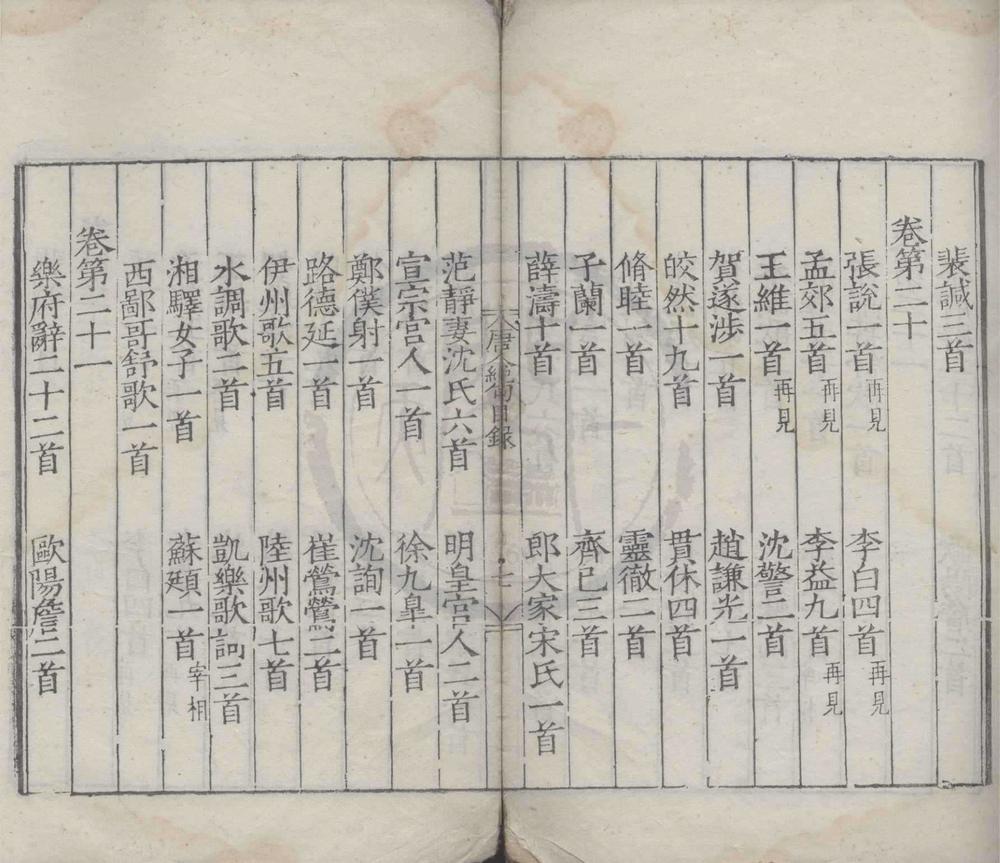 裴諴三首
卷第二十
張說一首再見 李白四首再見
孟郊五首再見 李益九首再見
王維一首再見 沈警二首
賀遂涉一首 趙謙光一首
皎然十九首 貫休四首
脩睦一首 靈徹二首
子蘭一首 齊已三首
薛濤十首 郎大家宋氏一首
唐人絶句目錄 七
范靜妻沈氏六首 明皇宮人二首
宣宗宮人一首 徐九皐一首
鄭僕射一首 沈詢一首
路德延一首 崔鶯鶯二首
伊州歌五首 陸州歌七首
水調歌二首 凱樂歌詞三首
湘驛女子一首 蘇頲一首宰相
西鄙哥舒歌一首
卷第二十一
樂府辭二十二首 歐陽詹二首